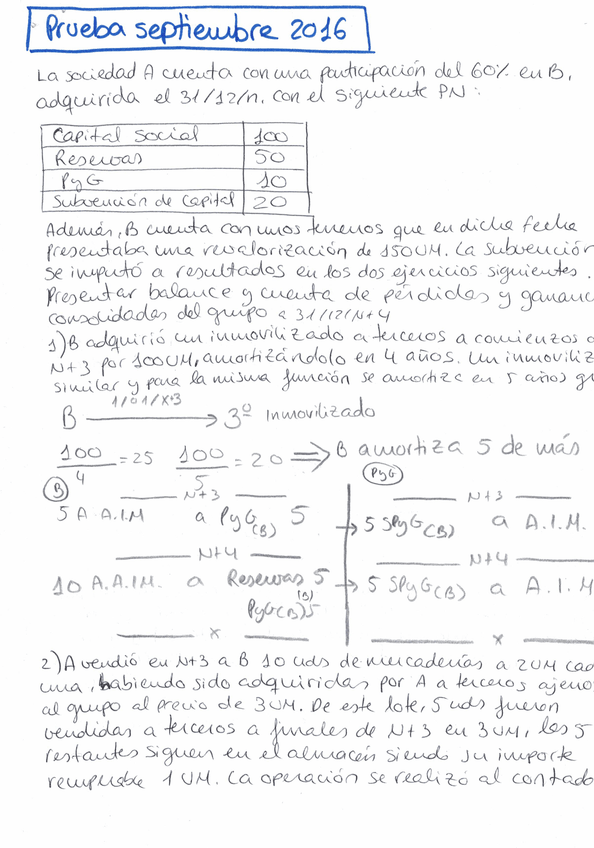 Prueba septiembre 2016
La sociedad A cuenta con una participación del 60% en B,
adquirida el 31/12/n, con el siguiente PN:
Capital Social 100
Reservas 50
PyG 10
Subvención de Capital 20
Además, B cuenta con unos terrenos que en dicha fecha
presentaba una revalorización de 150UM. La subvención
se imputó a resultados en los dos ejercicios siguientes.
Presentar balance y cuenta de pérdidas y gananc
consolidadas del grupo a 31/12/N+4
1) B adquirió un inmovilizado a terceros a comienzos d
N+3 por 100UM, amortizándolo en 4 años. Un inmoviliz
similar y para la misma función se amortiza en 5 años g
1/01/X+3
B → 3º Inmovilizado
100/4 = 25 100/5 = 20 ⇒ B amortiza 5 de más
B PyG
N+3 N+3
5 A.A.I.M a PyG(B) 5 → 5 SPyG(B) a A.I.M.
N+4 N+4
10 A.A.I.M. a Reservas 5 → 5 SPyG(B) a A.I.M
(B)
PyG(B) 5
x x
2) A vendió en N+3 a B 10 uds de mercaderías a 2UM cad
una, habiendo sido adquiridas por A a terceros ajeno
al grupo al precio de 3UM. De este lote, 5 uds fueron
vendidas a terceros a finales de N+3 en 3UM, las 5
restantes siguen en el almacén siendo su importe
recuperable 1UM. La operación se realizó al contado